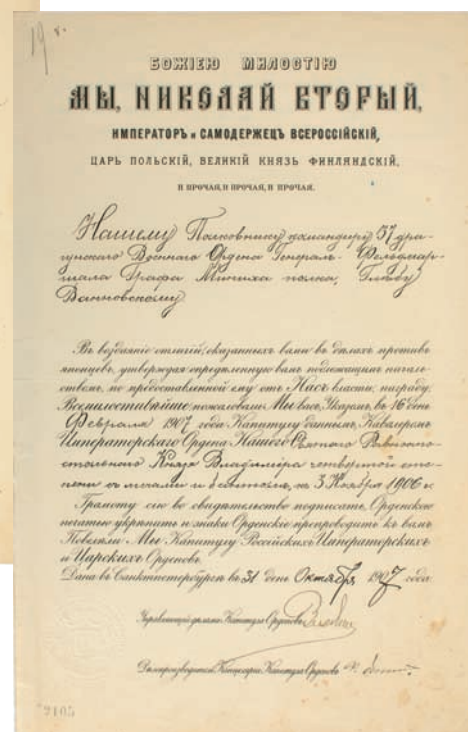 19
БОЖІЕЮ МИЛОСТІЮ
МЫ, НИКОЛАЙ ВТОРЫЙ,
ИМПЕРАТОРЪ и САМОДЕРЖЕЦЪ ВСЕРОССІЙСКІЙ,
ЦАРЬ ПОЛЬСКІЙ, ВЕЛИКІЙ КНЯЗЬ ФИНЛЯНДСКІЙ,
И ПРОЧАЯ, И ПРОЧАЯ, И ПРОЧАЯ.
Нашему Полковнику, командиру 37 дра-
гунскаго Военнаго Ордена Генералъ-Фельдмар-
шала Графа Миниха полка, Глѣбу
Ванновскому
Въ воздаяніе отличій, оказанныхъ вами въ дѣлахъ противъ
японцевъ, утверждая опредѣленную вамъ подлежащимъ началь-
ствомъ, по предоставленной ему отъ Насъ власти, награду,
Всемилостивѣйше пожаловали Мы васъ, Указомъ, въ 16 день
Февраля 1907 года Капитулу даннымъ, Кавалеромъ
Императорскаго Ордена Нашего Святаго Равноапо-
стольнаго Князя Владиміра четвертой сте-
пени съ мечами и бантомъ, 3 Ноября 1906 г.
Грамоту сію во свидѣтельство подписать, Орденскою
печатью укрѣпить и знаки Орденскіе препроводить къ вамъ
Повелѣли Мы Капитулу Россійскихъ Императорскихъ
и Царскихъ Орденовъ.
Дана въ Санктпетербургѣ въ 31 день Октября 1907 года.
Управляющій дѣлами Капитула Орденовъ
Дѣлопроизводитель Канцеляріи Капитула Орденовъ